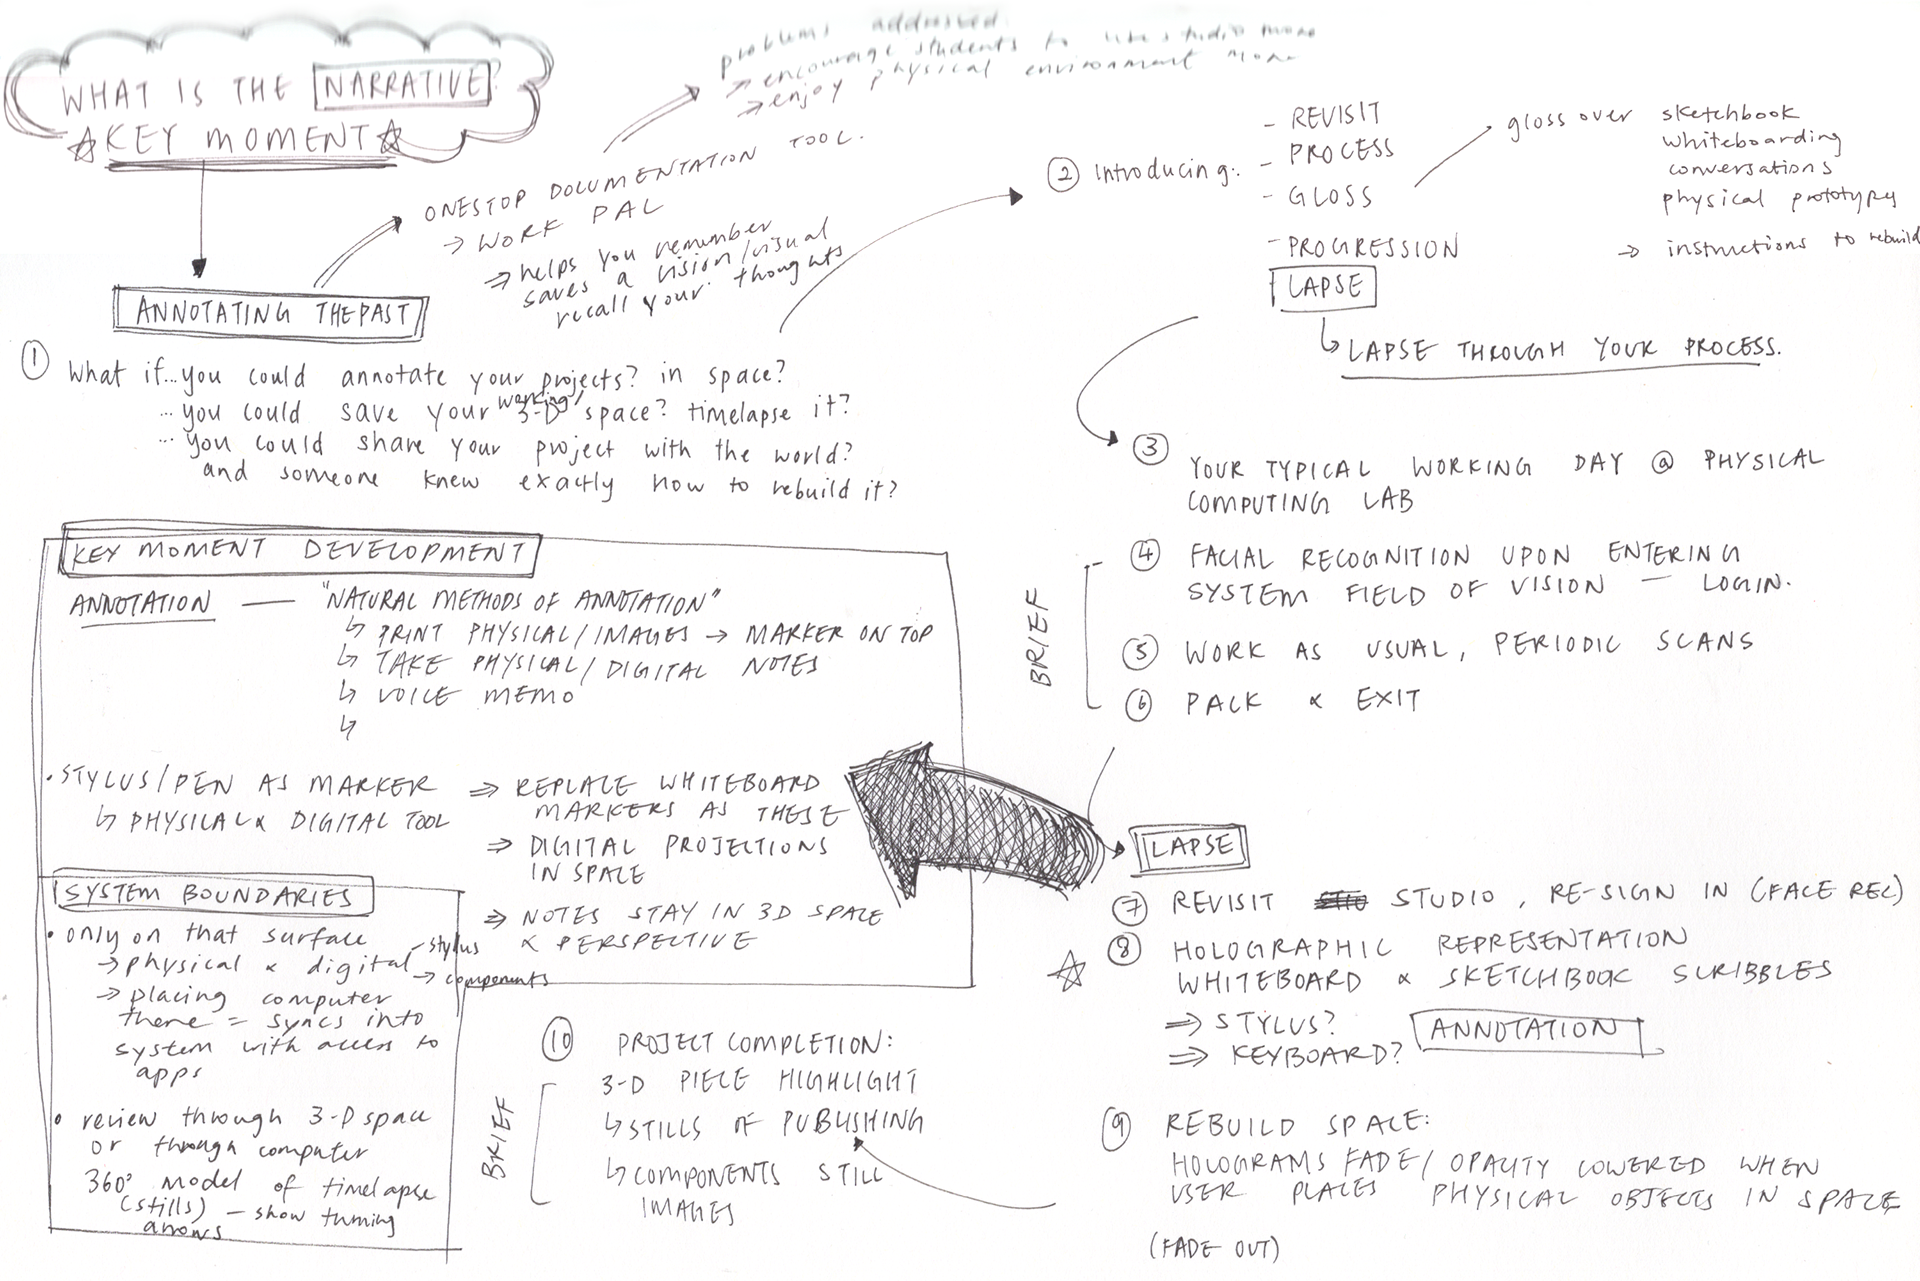 WHAT IS THE NARRATIVE?
KEY MOMENT
problems addressed
→ encourage students to use studio more
→ enjoy physical environment more
ONESTOP DOCUMENTATION TOOL.
→ WORK PAL
→ helps you remember
saves a vision/visual
recall your thoughts
ANNOTATING THE PAST
① What if...you could annotate your projects? in space?
... you could save your working 3-D space? timelapse it?
... you could share your project with the world?
and someone knew exactly how to rebuild it?
② Introducing:.
- REVISIT
- PROCESS
- GLOSS
- PROGRESSION
LAPSE
↳ LAPSE THROUGH YOUR PROCESS.
gloss over sketchbook
whiteboarding
conversations
physical prototypes
→ instructions to rebuild
③ YOUR TYPICAL WORKING DAY @ PHYSICAL
COMPUTING LAB
BRIEF
④ FACIAL RECOGNITION UPON ENTERING
SYSTEM FIELD OF VISION — LOGIN.
⑤ WORK AS USUAL, PERIODIC SCANS
⑥ PACK & EXIT
KEY MOMENT DEVELOPMENT
ANNOTATION — "NATURAL METHODS OF ANNOTATION"
↳ PRINT PHYSICAL/IMAGES → MARKER ON TOP
↳ TAKE PHYSICAL/DIGITAL NOTES
↳ VOICE MEMO
↳
• STYLUS/PEN AS MARKER
↳ PHYSICAL & DIGITAL TOOL
⇒ REPLACE WHITEBOARD
MARKERS AS THESE
⇒ DIGITAL PROJECTIONS
IN SPACE
⇒ NOTES STAY IN 3D SPACE
& PERSPECTIVE
SYSTEM BOUNDARIES
• only on that surface
→ physical & digital – stylus
→ components
→ placing computer
there = syncs into
system with access to
apps
• review through 3-D space
or through computer
360° model of timelapse
(stills) – show turning
arrows
LAPSE
⑦ REVISIT STUDIO, RE-SIGN IN (FACE REC)
⑧ HOLOGRAPHIC REPRESENTATION
WHITEBOARD & SKETCHBOOK SCRIBBLES
⇒ STYLUS?
⇒ KEYBOARD?
ANNOTATION
⑨ REBUILD SPACE:
HOLOGRAMS FADE/ OPACITY LOWERED WHEN
USER PLACES PHYSICAL OBJECTS IN SPACE
(FADE OUT)
⑩ PROJECT COMPLETION:
BRIEF
3-D PIECE HIGHLIGHT
↳ STILLS OF PUBLISHING
↳ COMPONENTS STILL
IMAGES